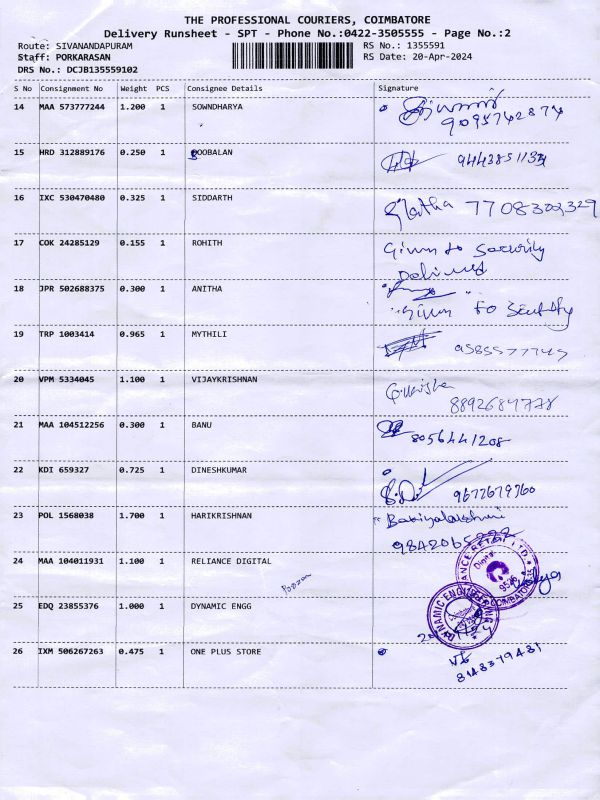 THE PROFESSIONAL COURIERS, COIMBATORE
Delivery Runsheet - SPT - Phone No.:0422-3505555 - Page No.:2
Route: SIVANANDAPURAM RS No.: 1355591
Staff: PORKARASAN RS Date: 20-Apr-2024
DRS No.: DCJB135559102
S No Consignment No Weight PCS Consignee Details Signature
14 MAA 573777244 1.200 1 SOWNDHARYA
9095742874
15 HRD 312889176 0.250 1 BOOBALAN
16 IXC 530470480 0.325 1 SIDDARTH 7708303329
17 COK 24285129 0.155 1 ROHITH Given to Security
Delivered
18 JPR 502688375 0.300 1 ANITHA
Given to Security
19 TRP 1003414 0.965 1 MYTHILI
20 VPM 5334045 1.100 1 VIJAYKRISHNAN
21 MAA 104512256 0.300 1 BANU 8056441208
22 KDI 659327 0.725 1 DINESHKUMAR
9677679760
23 POL 1568038 1.700 1 HARIKRISHNAN
24 MAA 104011931 1.100 1 RELIANCE DIGITAL
Digital
25 EDQ 23855376 1.000 1 DYNAMIC ENGG
26 IXM 506267263 0.475 1 ONE PLUS STORE
8148379481